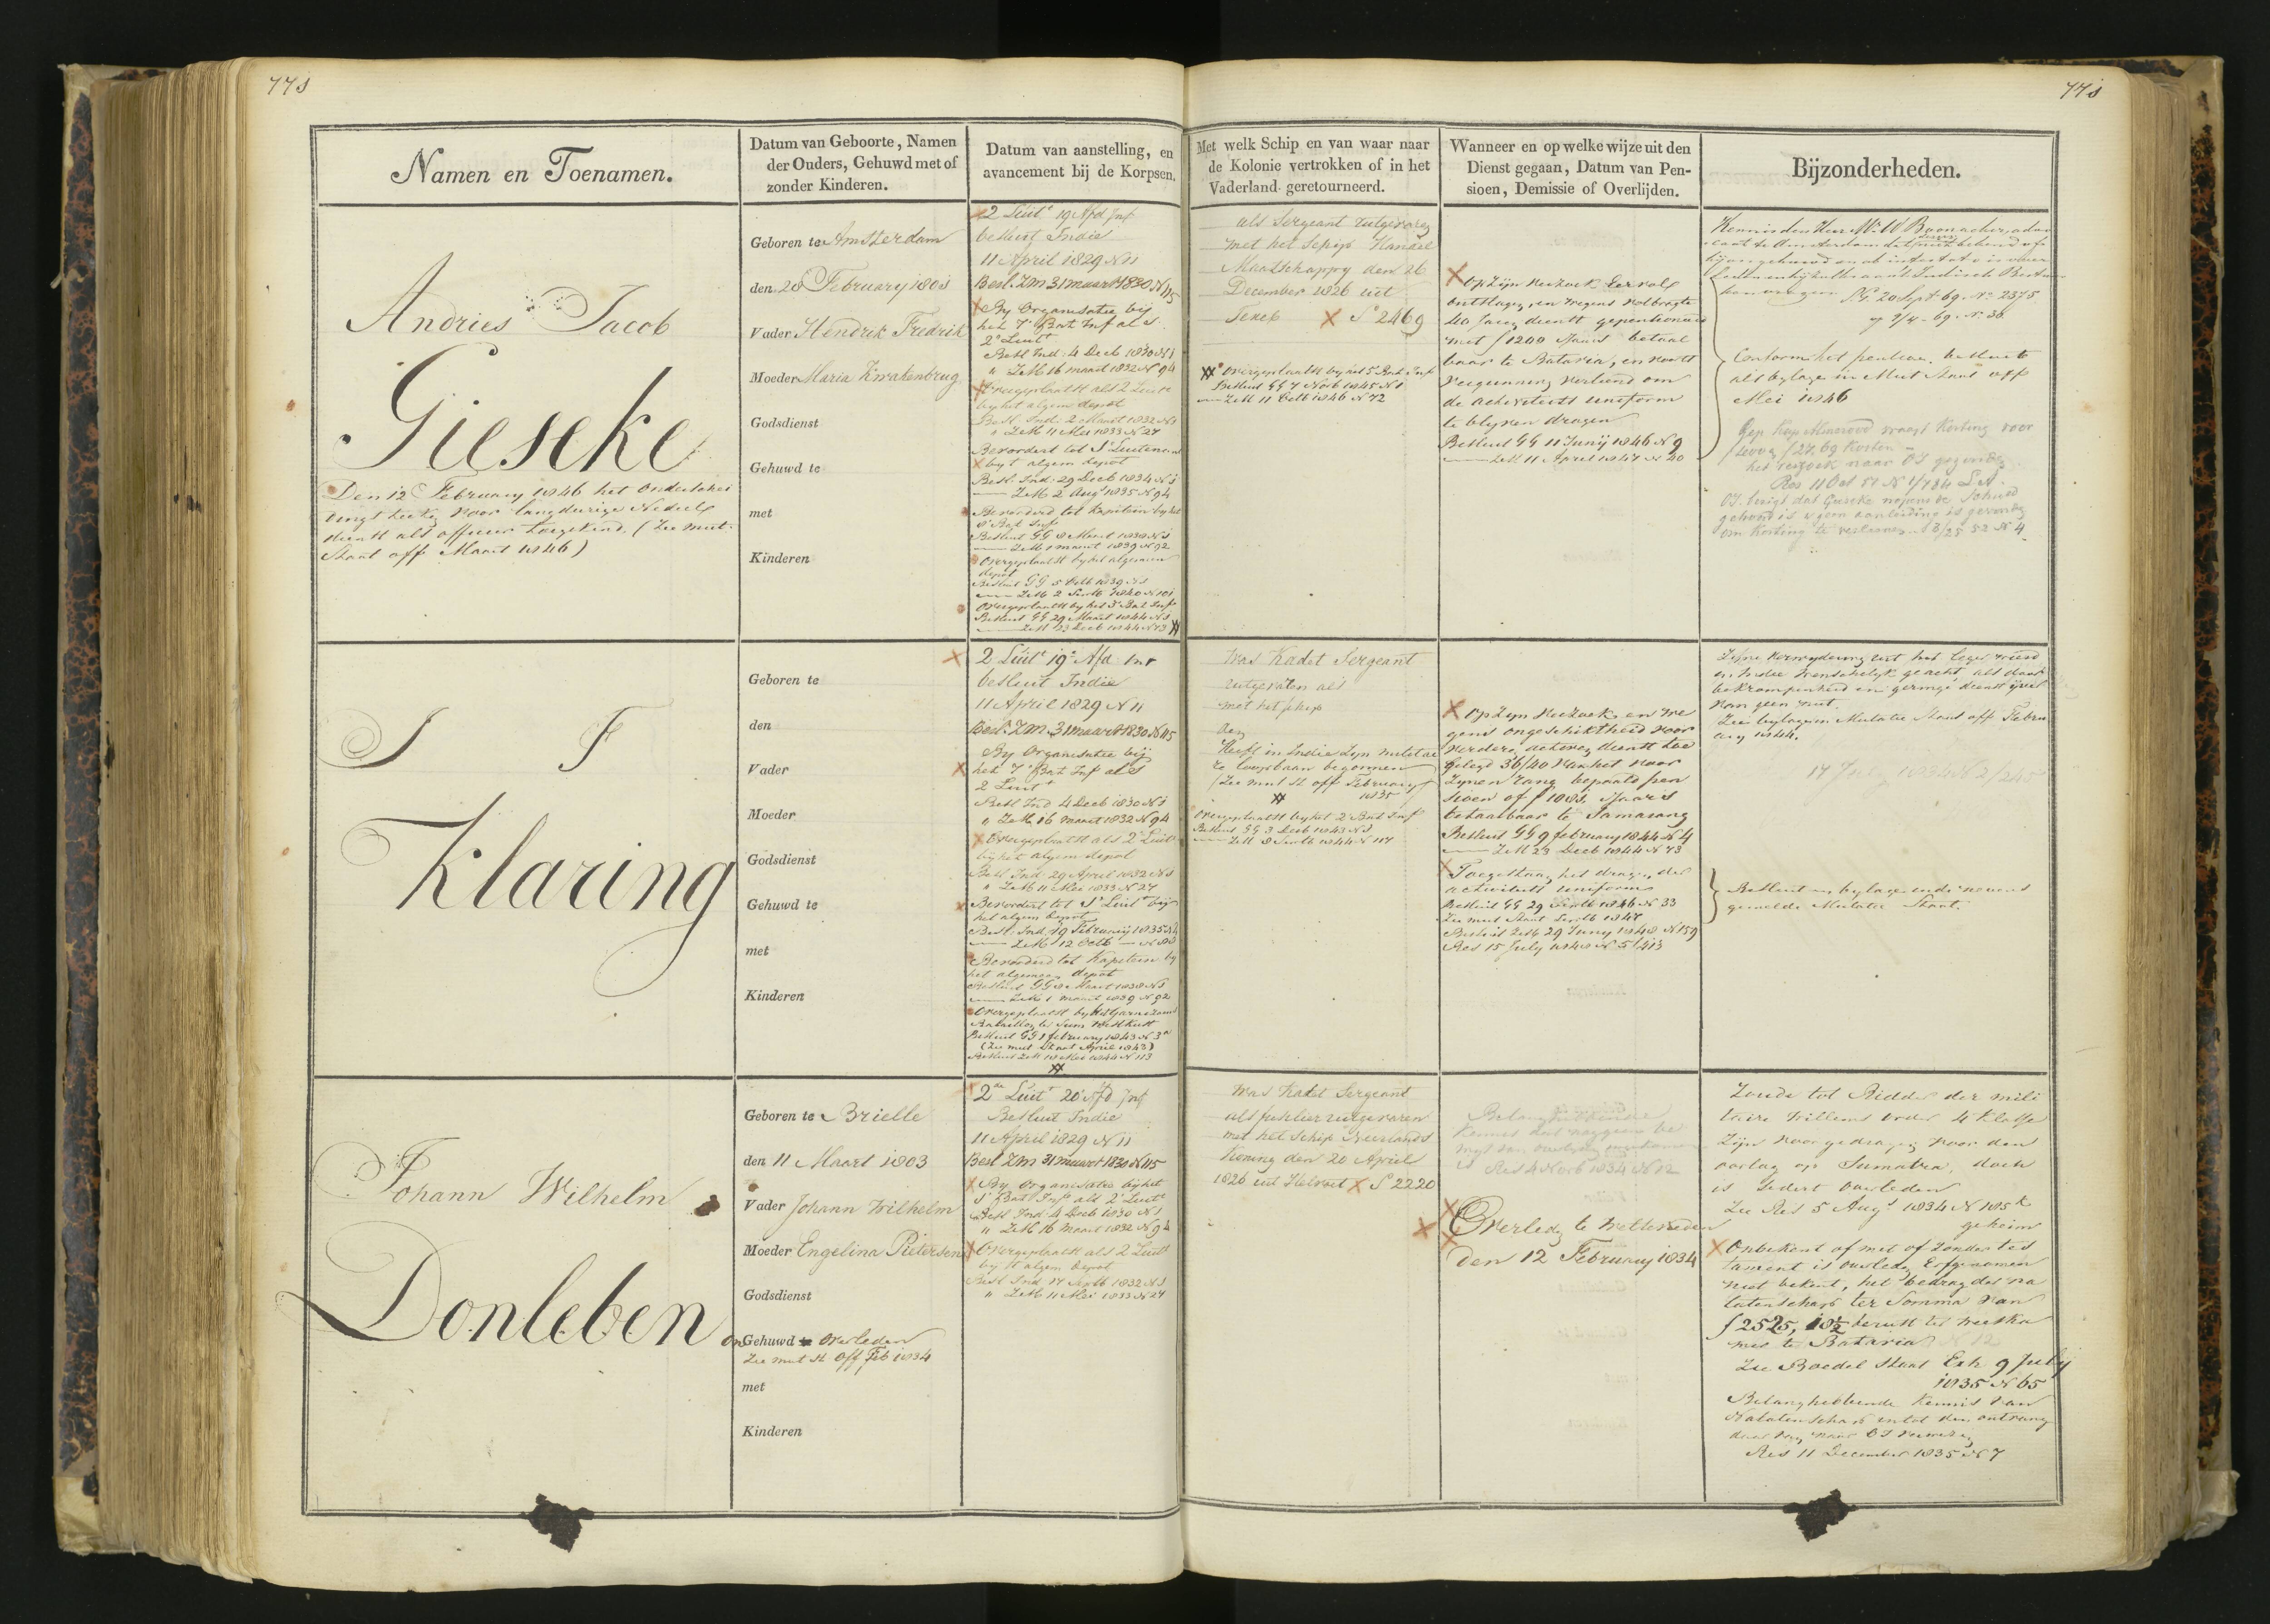 771
771
Namen en Toenamen.
Datum van Geboorte, Namen
der Ouders, Gehuwd met of
zonder Kinderen.
Datum van aanstelling, en
avancement bij de Korpsen.
Met welk Schip en van waar naar
de Kolonie vertrokken of in het
Vaderland geretourneerd.
Wanneer en op welke wijze uit den
Dienst gegaan, Datum van Pen-
sioen, Demissie of Overlijden.
Bijzonderheden.
Andries Jacob
Gieseke
Den 12 February 1846 het onderschei
dings teeken voor langdurige Nederl
dienst als officier toegekend. (Zie mut:
Staat off Maart 1846)
Geboren te Amsterdam
den 28 February 1801
Vader Hendrik Fredrik
Moeder Maria Kwakenbrug
Godsdienst
Gehuwd te
met
Kinderen
2 Luit 19 Afd Inf
besluit Indie
11 April 1829 N 11
Besl. ZM 31 maart 1830 N 115
By Organisatie bij
het 7 Bat Inf als
2 Luit
Besl Ind: 4 Decb 1830 N 1
" ZM 16 maart 1832 N 94
Overgeplaatst als 2 Luit
by het algem depot
Besl. Ind: 2 Maart 1832 N 1
" ZM 11 Mei 1833 N 27
Bevorderd tot 1 Luitenant
by t algem depot
Besl. Ind: 29 Decb 1834 N 1
ZM 2 Aug 1835 N 94
Bevorderd tot Kapitein by het
8 Bat Inf
Besluit GG 8 Maart 1838 N 1
ZM 1 maart 1839 N 92
Overgeplaatst by het algemeen
depot
Besluit GG 5 Octb 1839 N 1
ZM 2 Septb 1840 N 101
Overgeplaatst by het 3 Bat Inf
Besluit GG 29 Maart 1844 N 1
ZM 23 Decb 1844 N 73
als Sergeant uitgevaren
met het Schip Handel
Maatschappy den 26
December 1826 uit
Texel X S 2469
overgeplaatst by het 5 Bat Inf
Besluit GG 7 Novb 1845 N 1
ZM 11 Octb 1846 N 72
Op zijn verzoek Eervol
ontslagen, en wegens volbragte
40 jaren dienst gepensioneerd
met f 1200 sjaars betaal
baar te Batavia, en voorts
vergunning verleend om
de activiteits uniform
te blyven dragen
Besluit GG 11 Junij 1846 N 9
ZM 11 April 1847 N 40
20 Sept 69. N 2375
Conform het pension besluit
als bylage in Mut Staat off
Mei 1846
J F
Klaring
Geboren te
den
Vader
Moeder
Godsdienst
Gehuwd te
met
Kinderen
2 Luit 19 Afd Inf
besluit Indie
11 April 1829 N 11
Besl. ZM 31 maart 1830 N 115
By Organisatie bij
het 7 Bat Inf als
2 Luit
Besl Ind 4 Decb 1830 N 1
" ZM 16 maart 1832 N 94
Overgeplaatst als 2 Luit
by het algem depot
Besl Ind: 29 April 1832 N 1
" ZM 11 Mei 1833 N 27
Bevorderd tot 1 Luit by
het algem depot
Besl. Ind: 19 February 1835 N 4
ZM 12 Octb
Bevorderd tot Kapitein by
het algemeen depot
Besluit GG 8 Maart 1838 N 1
ZM 1 maart 1839 N 92
overgeplaatst by het Garnizoens
Bataillon te Sum: Westkust
Besluit GG 1 february 1843 N 3
(Zie mut Staat April 1843)
Besluit ZM 18 Mei 1844 N 113
Was Kadet Sergeant
uitgevaren als
met het schip
den
Heeft in Indie zyn militai
re loopbaan begonnen
(Zie mut St off February
1835
overgeplaatst by het 2 Bat Inf
Besluit GG 3 Decb 1843 N 1
ZM 8 Septb 1844 N 117
Op zyn verzoek, en we
gens ongeschiktheid voor
verderen activen dienst toe
gelegd 36/40 van het voor
zynen rang bepaald pen
sioen of f 1083 sjaars
betaalbaar te Samarang
Besluit GG 9 february 1844 N 4
ZM 23 Decb 1844 N 73
Toegestaan het dragen der
activiteits uniform
Besluit GG 29 Septb 1846 N 33
Zie mut Staat Septb 1847
Besluit ZM 29 Juny 1848 N 159
Res 15 July 1848 N 5/413
Zyne verwydering uit het leger wierd
in Indie wenschelyk geacht, als door
bekrompenheid en geringe dienst yver
van geen nut.
Zie bylage in Mutatie Staat off Febru
ary 1844.
Besluit en bylage ende nevens
gemelde Mutatie Staat.
Johann Wilhelm
Donleben
Geboren te Brielle
den 11 Maart 1803
Vader Johann Wilhelm
Moeder Engelina Pietersen
Godsdienst
OnGehuwd overleden
Zie mut St Off Feb 1834
met
Kinderen
2de Luit 20 Afd Inf
Besluit Indie
11 April 1829 N 11
Besl ZM 31 maart 1830 N 115
By Organisatie by het
1 Bat Inf als 2 Luit
Besl Ind 4 Decb 1830 N 1
" ZM 16 Maart 1832 N 94
Overgeplaatst als 2 Luit
by t algem depot
Besl Ind 17 Septb 1832 N 1
" ZM 11 Mei 1833 N 27
was Kadet Sergeant
als fuselier uitgevaren
met het Schip Neerlands
Koning den 20 April
1826 uit Helvoet X S 2220
Res 4 Novb 1834 N 12
Overleden te Weltevreden
den 12 February 1834
Zoude tot Ridder der mili
taire Willems order 4 Klasse
zijn voorgedragen voor den
oorlog op Sumatra, doch
is sedert overleden
Zie Res 5 Aug 1834 N 185
geheim
Onbekent of met of zonder tes
tament is overleden Erfgenamen
niet bekent, het bedrag der na
latenschap ter Somma van
f 2525, 18½ berust ter weeska
mer te Batavia
Zie Boedel Staat Exh 9 July
1835 N 65
Belanghebbende kennis van
Nalatenschap en tot den ontvang
daar van naar OI verwezen
Res 11 December 1835 N 7